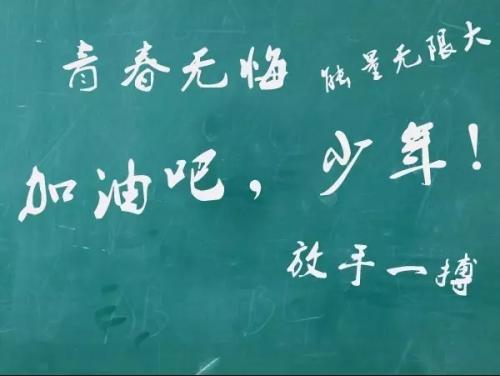 青春无悔
能量无限大
加油吧，少年！
放手一搏